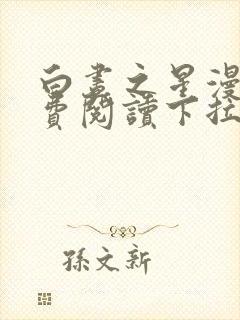 白晝之星漫
費閱讀下拉
孫文新